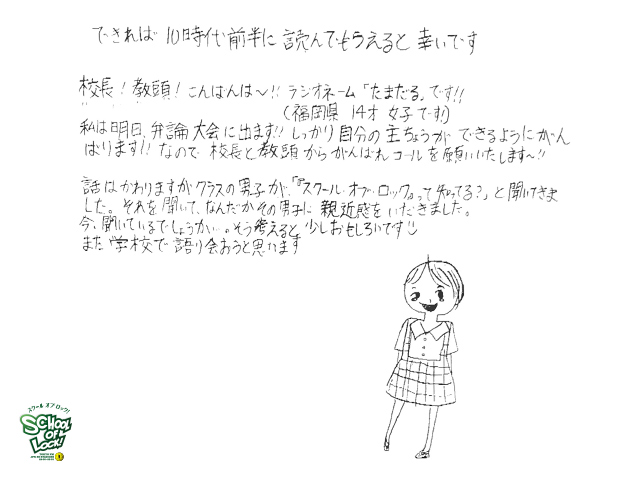 できれば 10時代前半に 読んでもらえると 幸いです
校長！教頭！こんばんは～!! ラジオネーム「たまだる」です!!
（福岡県 14才 女子です!）
私は明日、弁論大会に出ます!! しっかり自分の主ちょうが できるようにがん
ばります!! なので 校長と教頭から がんばれコールを願いいたします～!!
話はかわりますがクラスの男子が、「『スクール・オブ・ロック』って知ってる？」と聞いてきま
した。それを聞いて、なんだかその男子に 親近感を いだきました。
今、聞いているでしょうかい…。そう考えると 少しおもしろいです
また学校で語り会おうと思います
スクール オブ ロック！
SCHOOL
OF
LOCK!